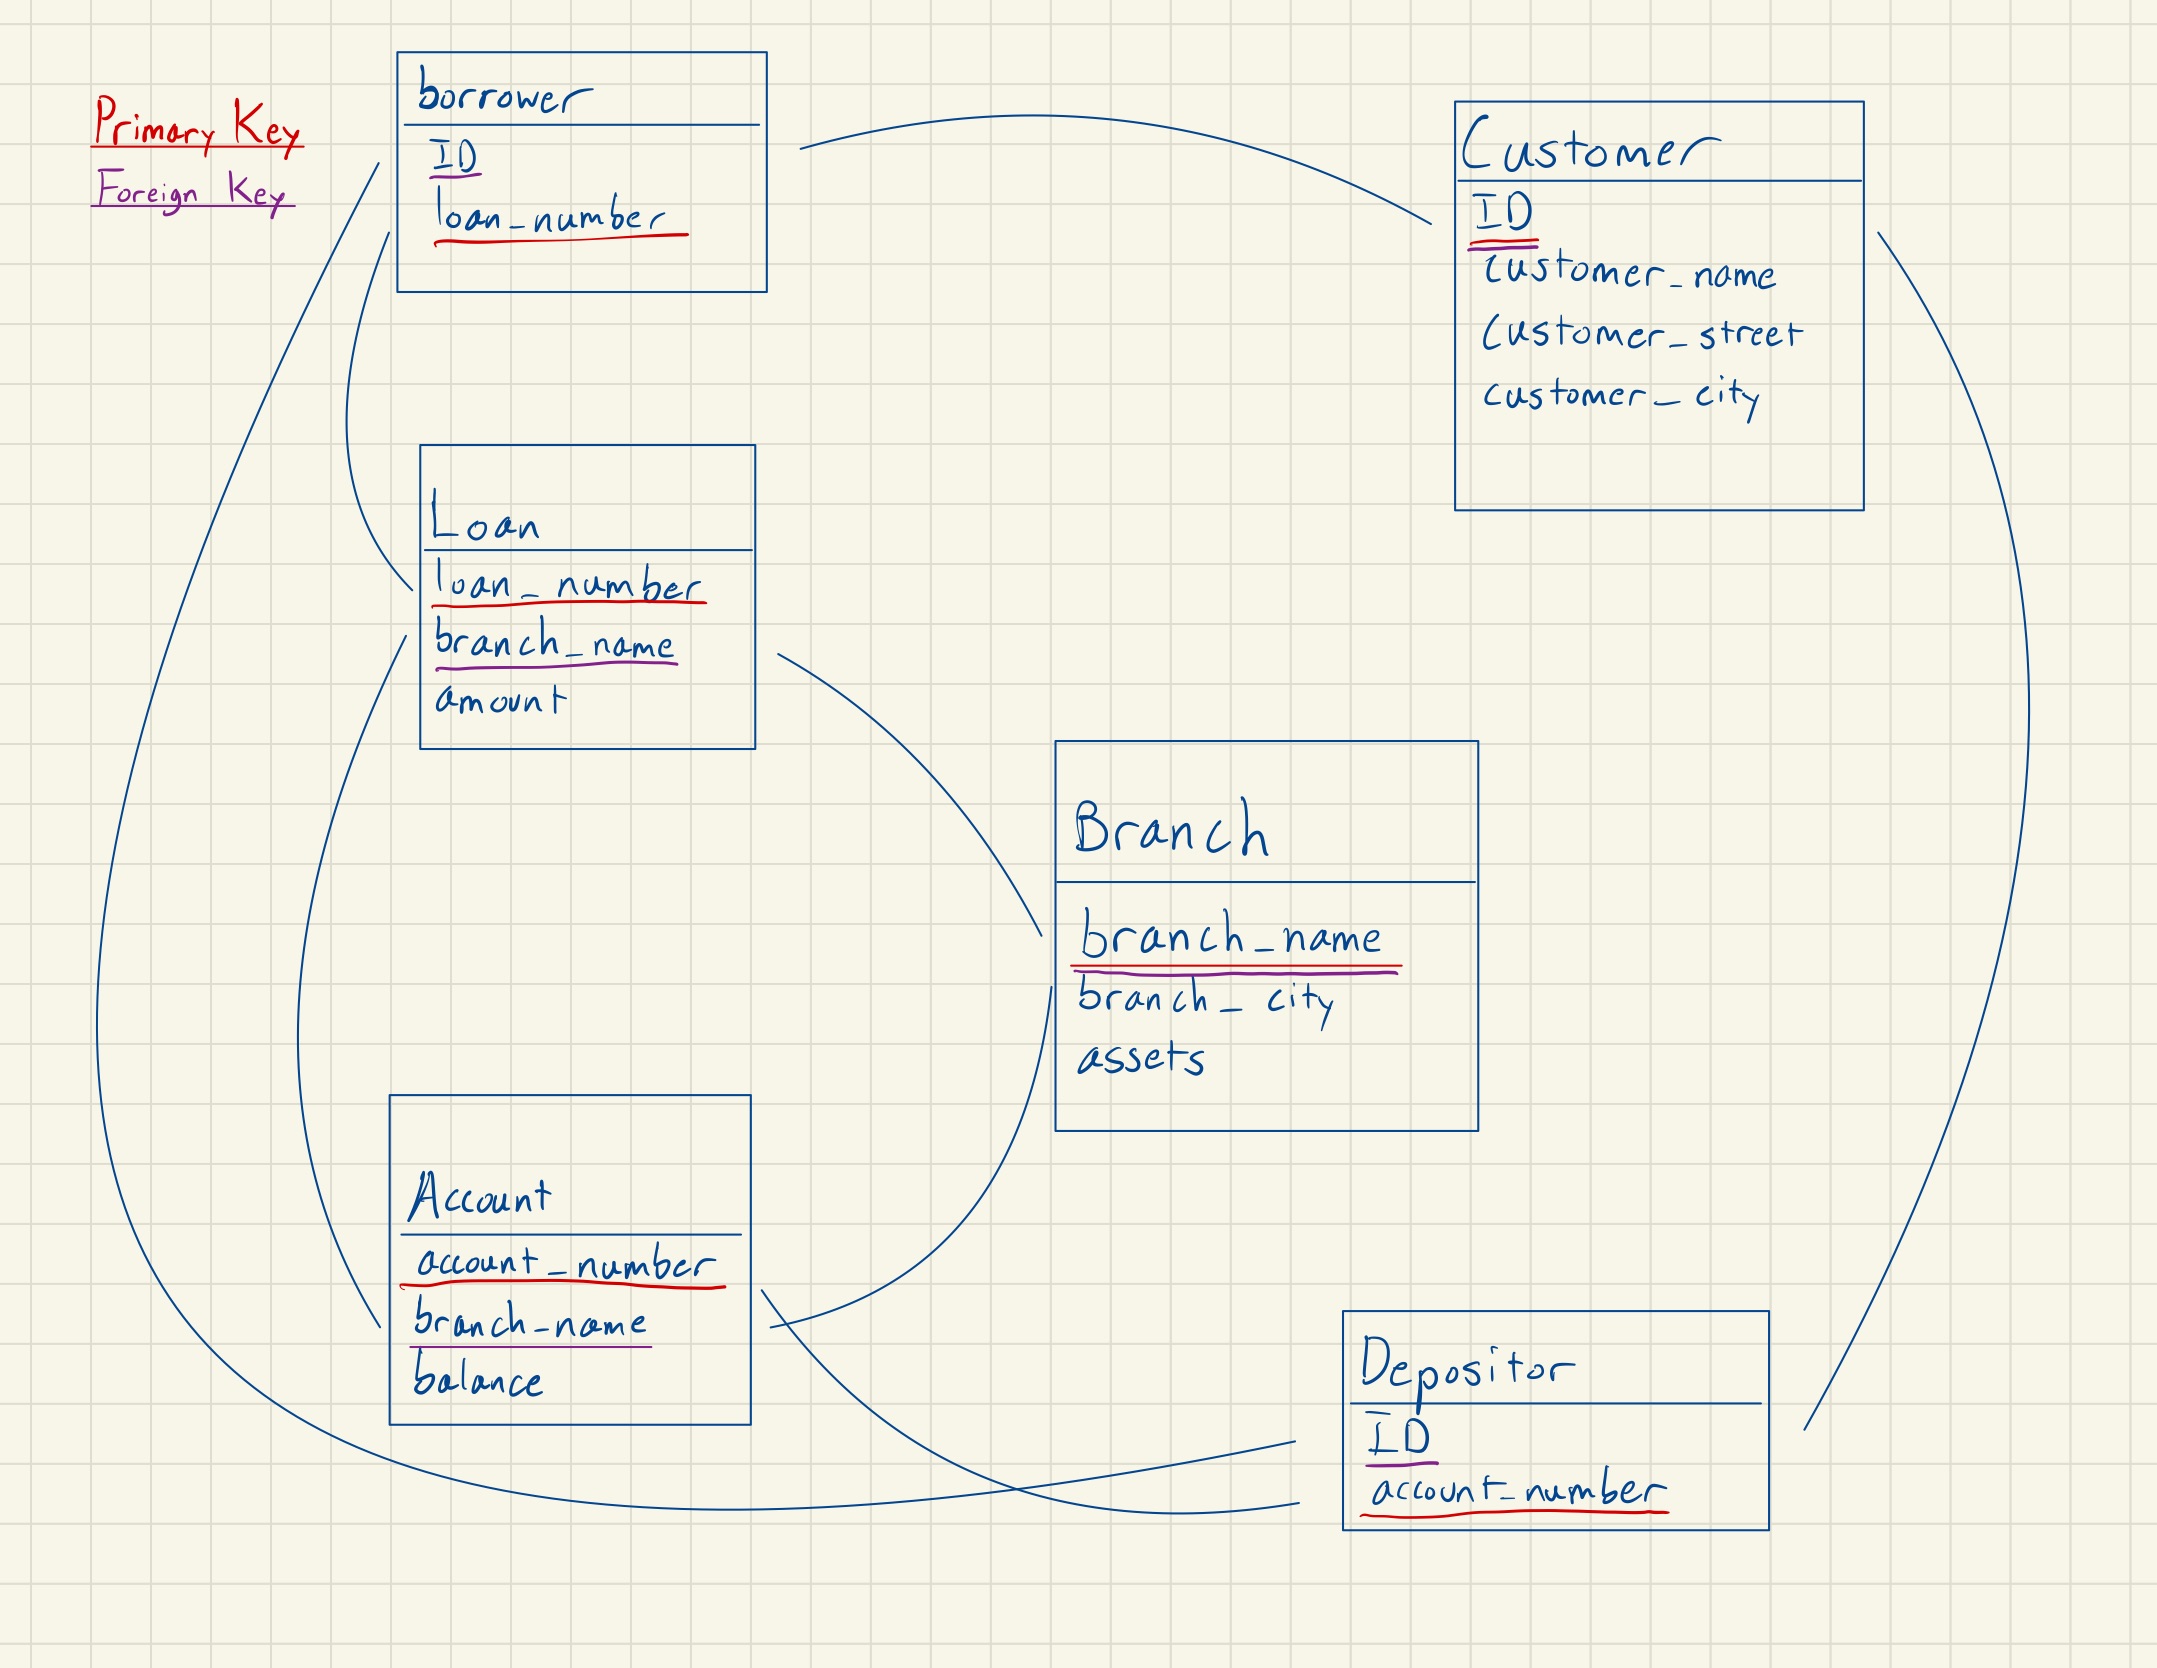 Primary Key
Foreign Key
borrower
ID
loan_number
Customer
ID
customer_name
customer_street
customer_city
Loan
loan_number
branch_name
amount
Branch
branch_name
branch_city
assets
Account
account_number
branch_name
balance
Depositor
ID
account_number